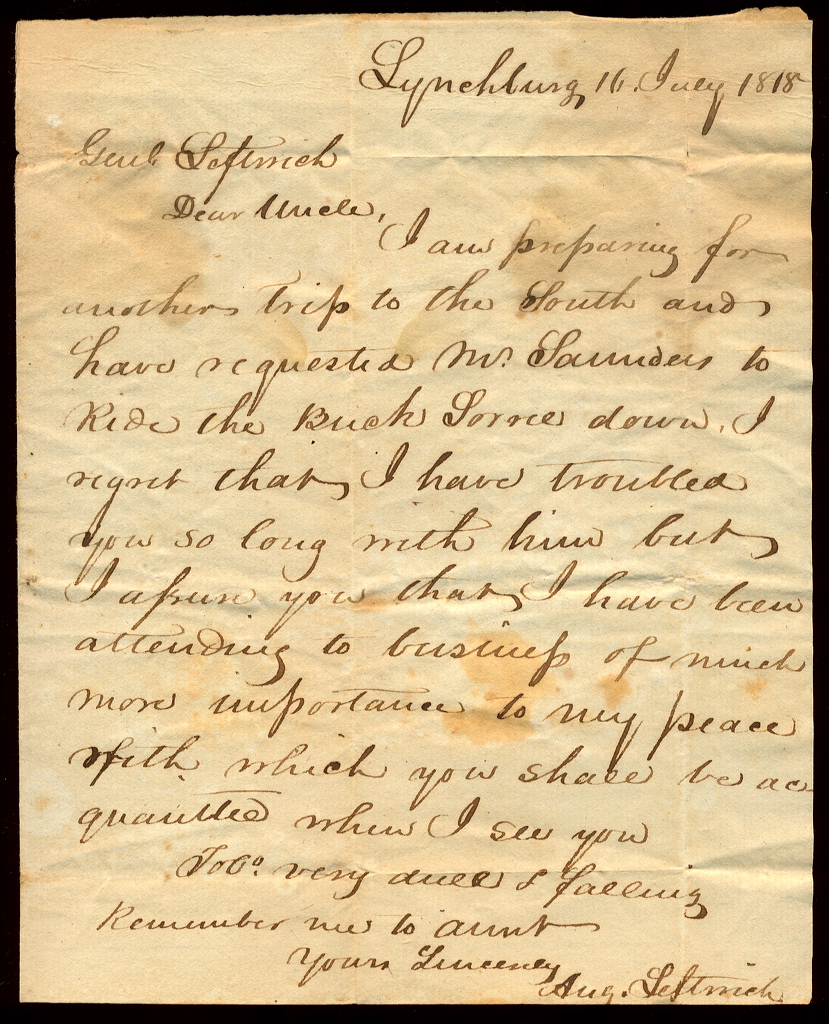 Lynchburg 16. July 1818
Genl. Leftwich
Dear Uncle,
I am preparing for
another trip to the South and
have requested Mr. Saunders to
Ride the Buck Sorrel down. I
regret that I have troubled
you so long with him but
I assure you that I have been
attending to business of much
more importance to my peace
with which you shall be ac
quantted when I see you
Tobo. very dull & falling
Remember me to aunt
Yours Sincerely
Aug. Leftwich